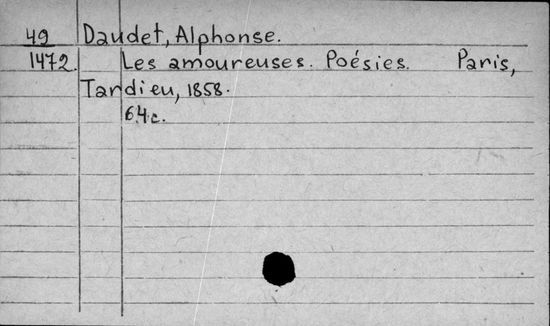 49 Daudet, Alphonse.
1472. Les amoureuses. Poésies. Paris,
Tardieu, 1858.
64 c.